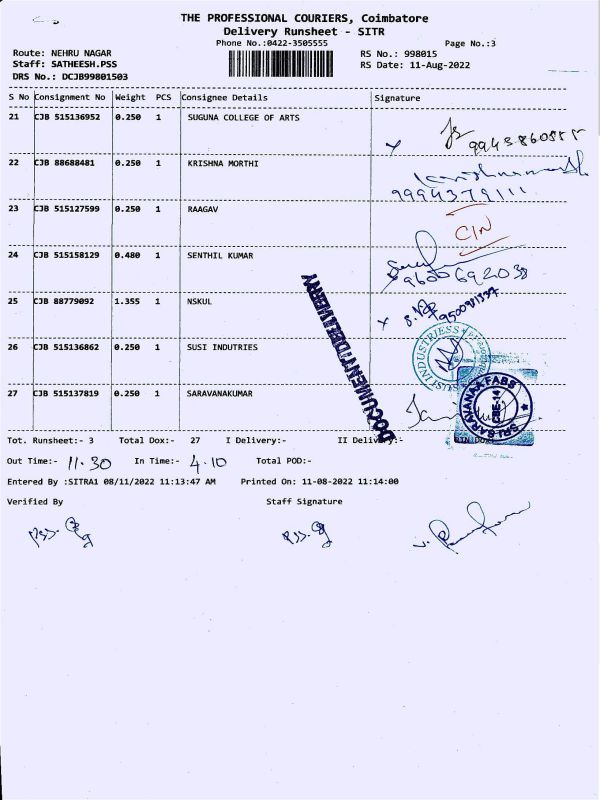 THE PROFESSIONAL COURIERS, Coimbatore
Delivery Runsheet - SITR
Phone No.:0422-3505555 Page No.:3
Route: NEHRU NAGAR RS No.: 998015
Staff: SATHEESH.PSS RS Date: 11-Aug-2022
DRS No.: DCJB99801503
S No Consignment No Weight PCS Consignee Details Signature
21 CJB 515136952 0.250 1 SUGUNA COLLEGE OF ARTS
22 CJB 88688481 0.250 1 KRISHNA MORTHI
9994379111
23 CJB 515127599 0.250 1 RAAGAV
24 CJB 515158129 0.480 1 SENTHIL KUMAR
9600692038
25 CJB 88779092 1.355 1 NSKUL
DOCUMENT DELIVERY
26 CJB 515136862 0.250 1 SUSI INDUTRIES
INDUSTRIESS
27 CJB 515137819 0.250 1 SARAVANAKUMAR
SRI SARAVANAA FABS
CBE-14
Tot. Runsheet:- 3 Total Dox:- 27 I Delivery:- II Delivery:-
Out Time:- 11.30 In Time:- 4.10 Total POD:-
Entered By :SITRA1 08/11/2022 11:13:47 AM Printed On: 11-08-2022 11:14:00
Verified By Staff Signature